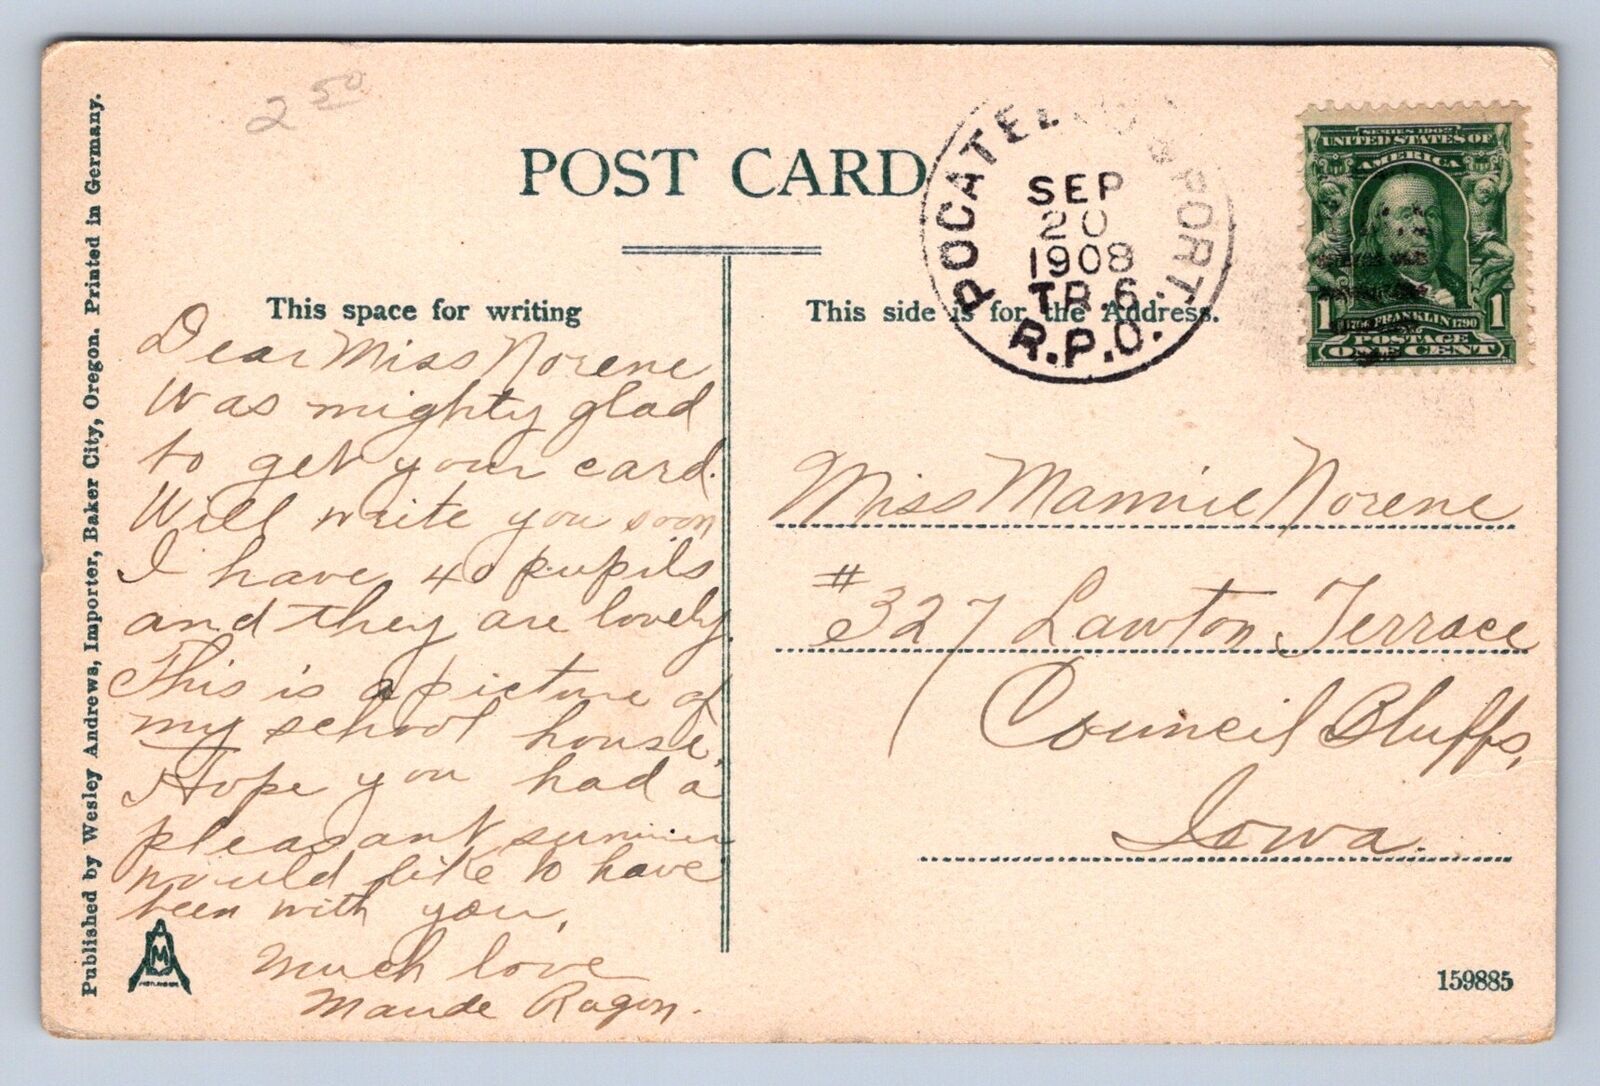 2 50
POST CARD
POCATEL & PORT.
SEP
20
1908
TR.6
R.P.O.
SERIES 1902
UNITED STATES OF
AMERICA
1 FRANKLIN 1790 1
POSTAGE
ONE CENT
This space for writing
This side is for the Address.
Dear Miss Norene
Was mighty glad
to get your card.
Will write you soon
I have 40 pupils
and they are lovely.
This is a picture of
my school house,
Hope you had a
pleasant summer
would like to have
been with you,
Much love
Maude Ragon.
Miss Mamie Norene
#327 Lawton Terrace
Council Bluffs,
Iowa.
159885
Published by Wesley Andrews, Importer, Baker City, Oregon. Printed in Germany.